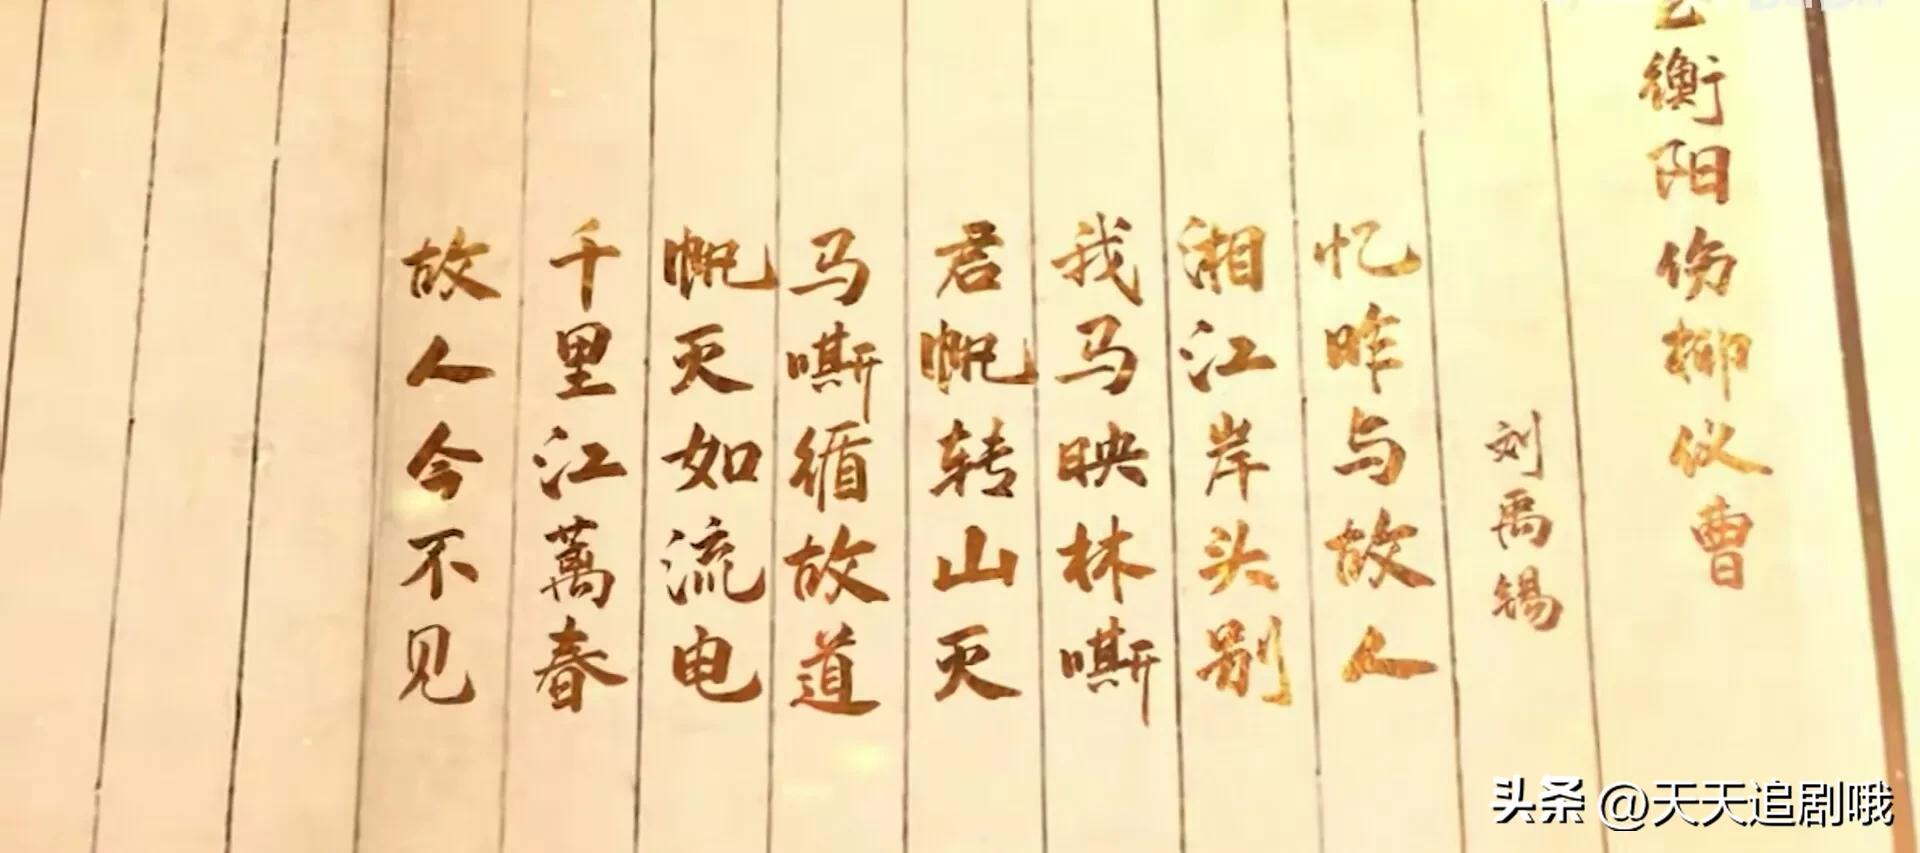 衡阳伤柳仪曹
刘禹锡
忆昨与故人
湘江岸头别
我马映林嘶
君帆转山灭
马嘶循故道
帆灭如流电
千里江萬春
故人今不见
头条 @天天追剧哦